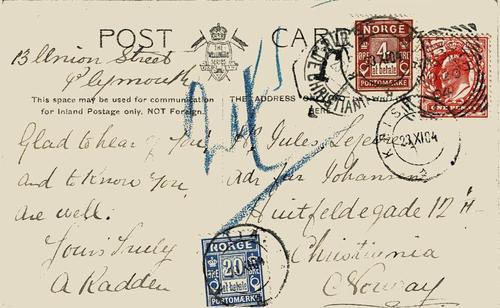 POST CARD
THE WELLINGTON SERIES
13 Union Street
Plymouth
This space may be used for communication
for Inland Postage only, NOT Foreign.
THE ADDRESS ON
HERE
Glad to hear of you
and to know you
are well.
Yours truly
A Radden
Mr Jules
adr
Huitfeldegade 12
Christiania
Norway
NORGE
4
at betale
PORTOMÆRKE
ONE PENNY
KRIS
23 XI 04
NORGE
20
at betale
PORTOMÆRKE